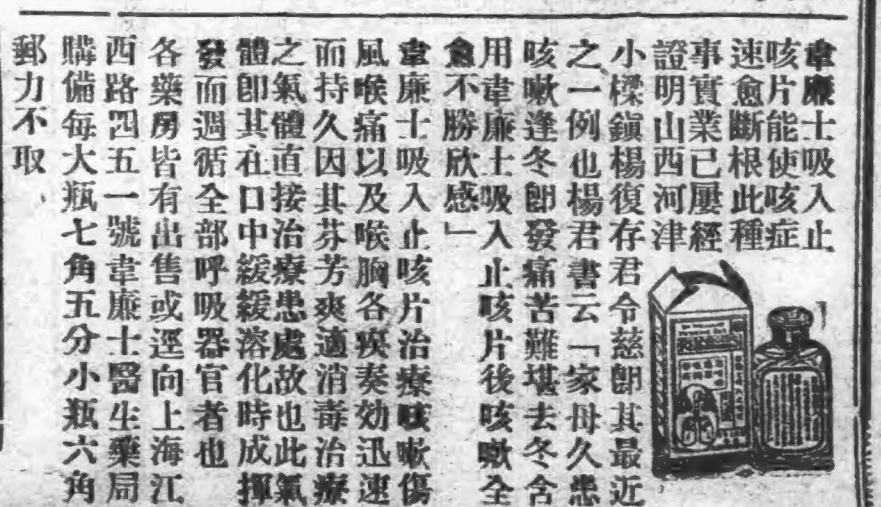 韋廉士吸入止
咳片能使咳症
速愈斷根此種
事實業已屢經
證明山西河津
小樑鎭楊復存君令慈卽其最近
之一例也楊君書云「家母久患
咳嗽逢冬卽發痛苦難堪去冬含
用韋廉士吸入止咳片後咳嗽全
愈不勝欣感」
韋廉士吸入止咳片治療咳嗽傷
風喉痛以及喉胸各疾奏効迅速
而持久因其芬芳爽適消毒治療
之氣體直接治療患處故也此氣
體卽其在口中緩緩溶化時成揮
發而週循全部呼吸器官者也
各藥房皆有出售或逕向上海江
西路四五一號韋廉士醫生藥局
購備每大瓶七角五分小瓶六角
郵力不取